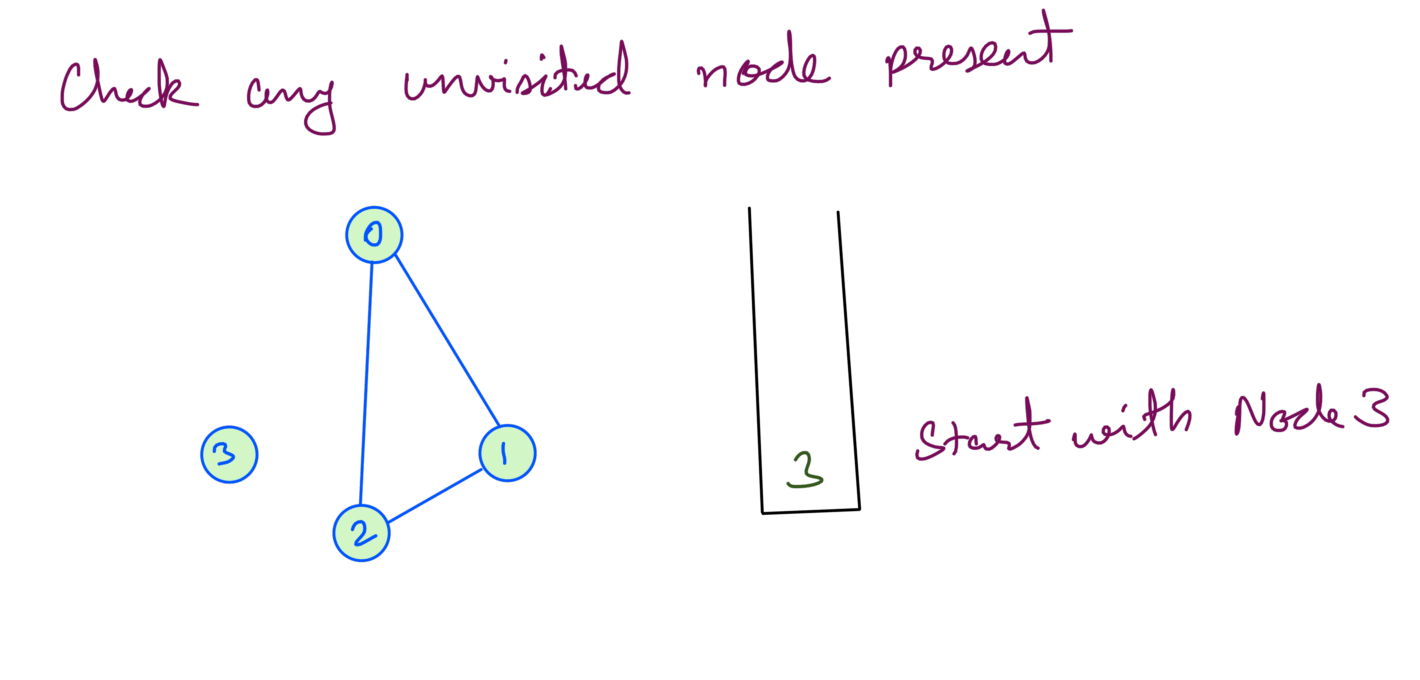 Check any unvisited node present
0
3
1
2
3
Start with Node 3